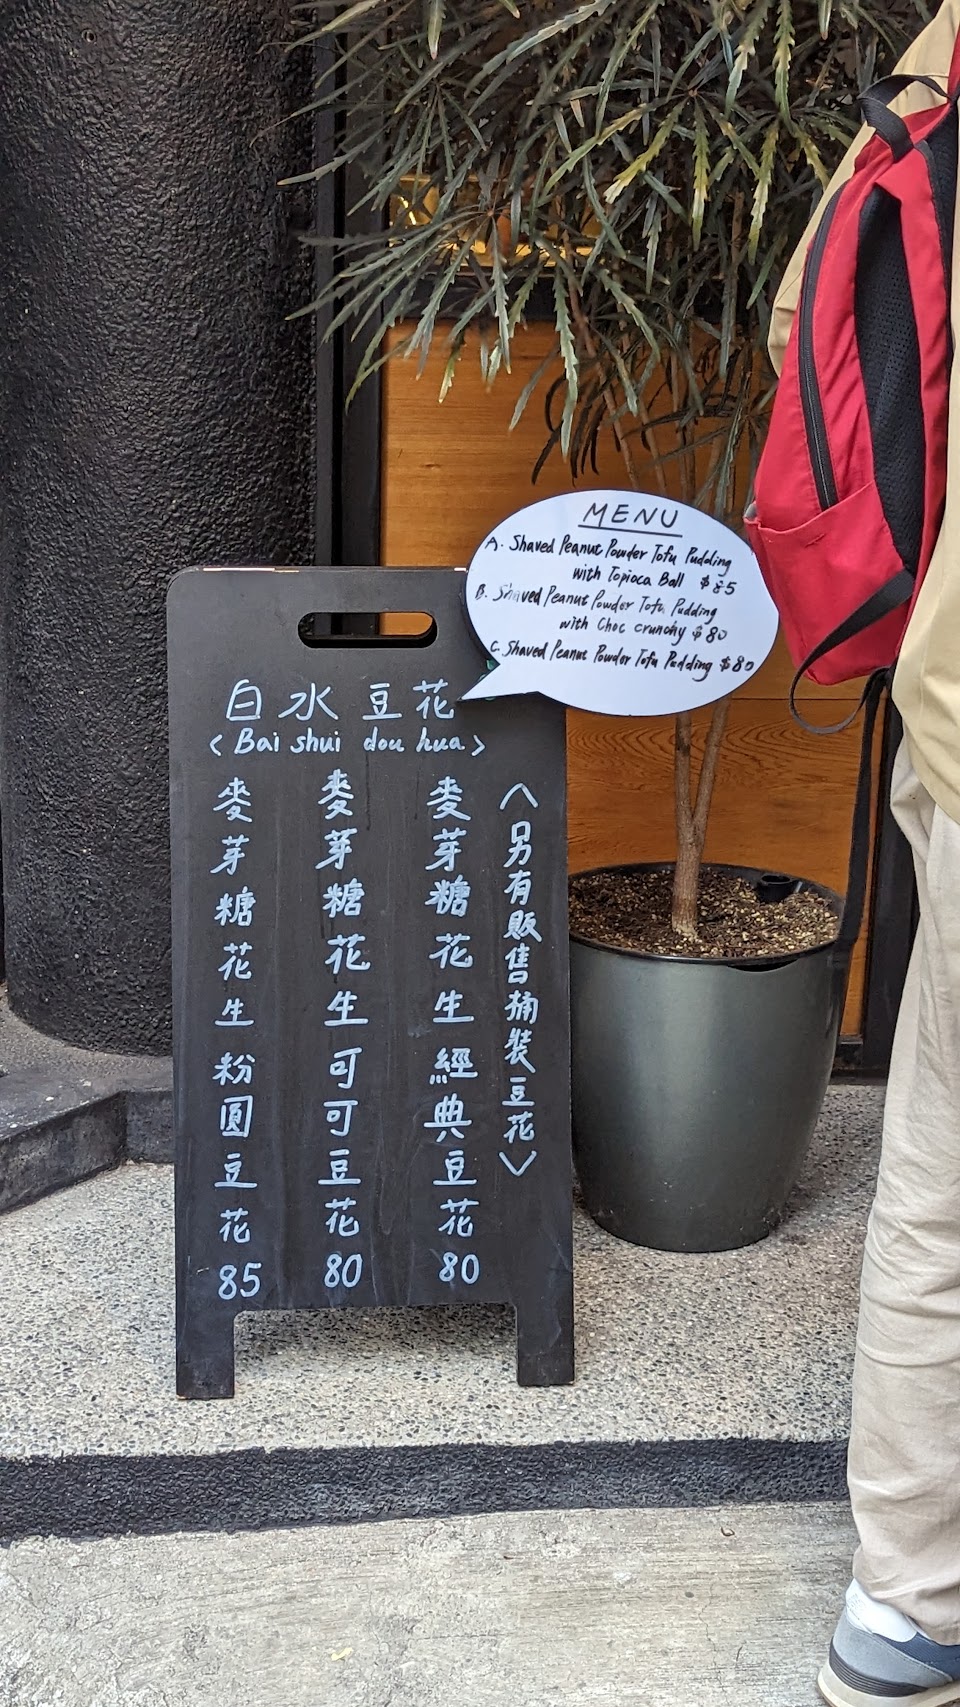 MENU
A. Shaved Peanut Powder Tofu Pudding
with Tapioca Ball $85
B. Shaved Peanut Powder Tofu Pudding
with Choc crunchy $80
C. Shaved Peanut Powder Tofu Pudding $80
白水豆花
<Bai shui dou hua>
<另有販售桶裝豆花>
麥芽糖花生經典豆花 80
麥芽糖花生可可豆花 80
麥芽糖花生粉圓豆花 85